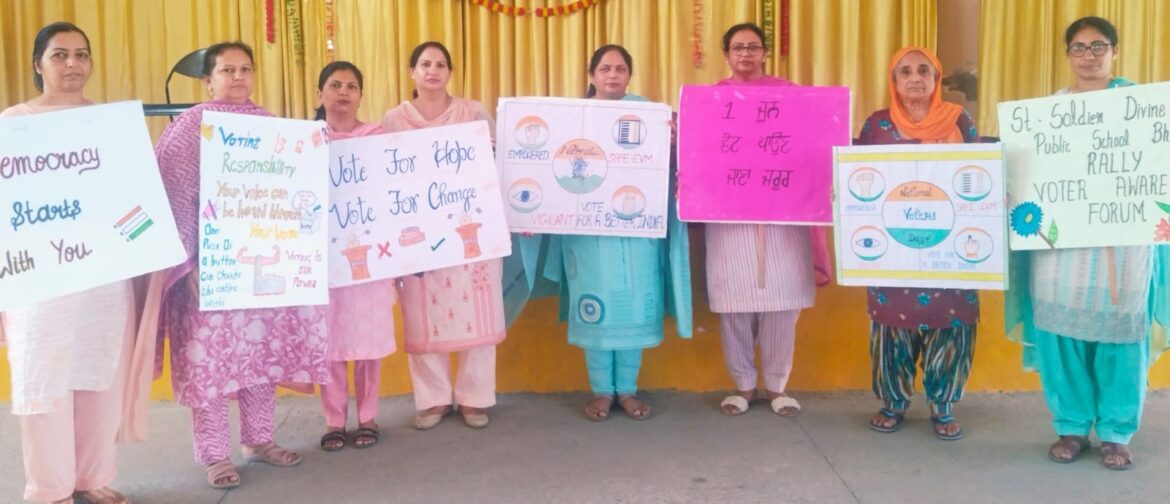 emocracy
Starts
With You
Voting is a
Responsibility
Your voice can
be heard through
Your Vote
One
Push Of
a button
Can Change
the entire
World
Voting is
our
Power
Vote For Hope
Vote For Change
EMPOWERED
National
SAFE-EVM
VIGILANT
VOTE
FOR A BETTER INDIA
1 ਜੂਨ
ਵੋਟ ਪਾਉਣ
ਜਾਣਾ ਜ਼ਰੂਰ
EMPOWERED
National
Voters
Day
SAFE-EVM
VOTE FOR
A BETTER INDIA
St. Soldier Divine
Public School
RALLY
VOTER AWARE
FORUM